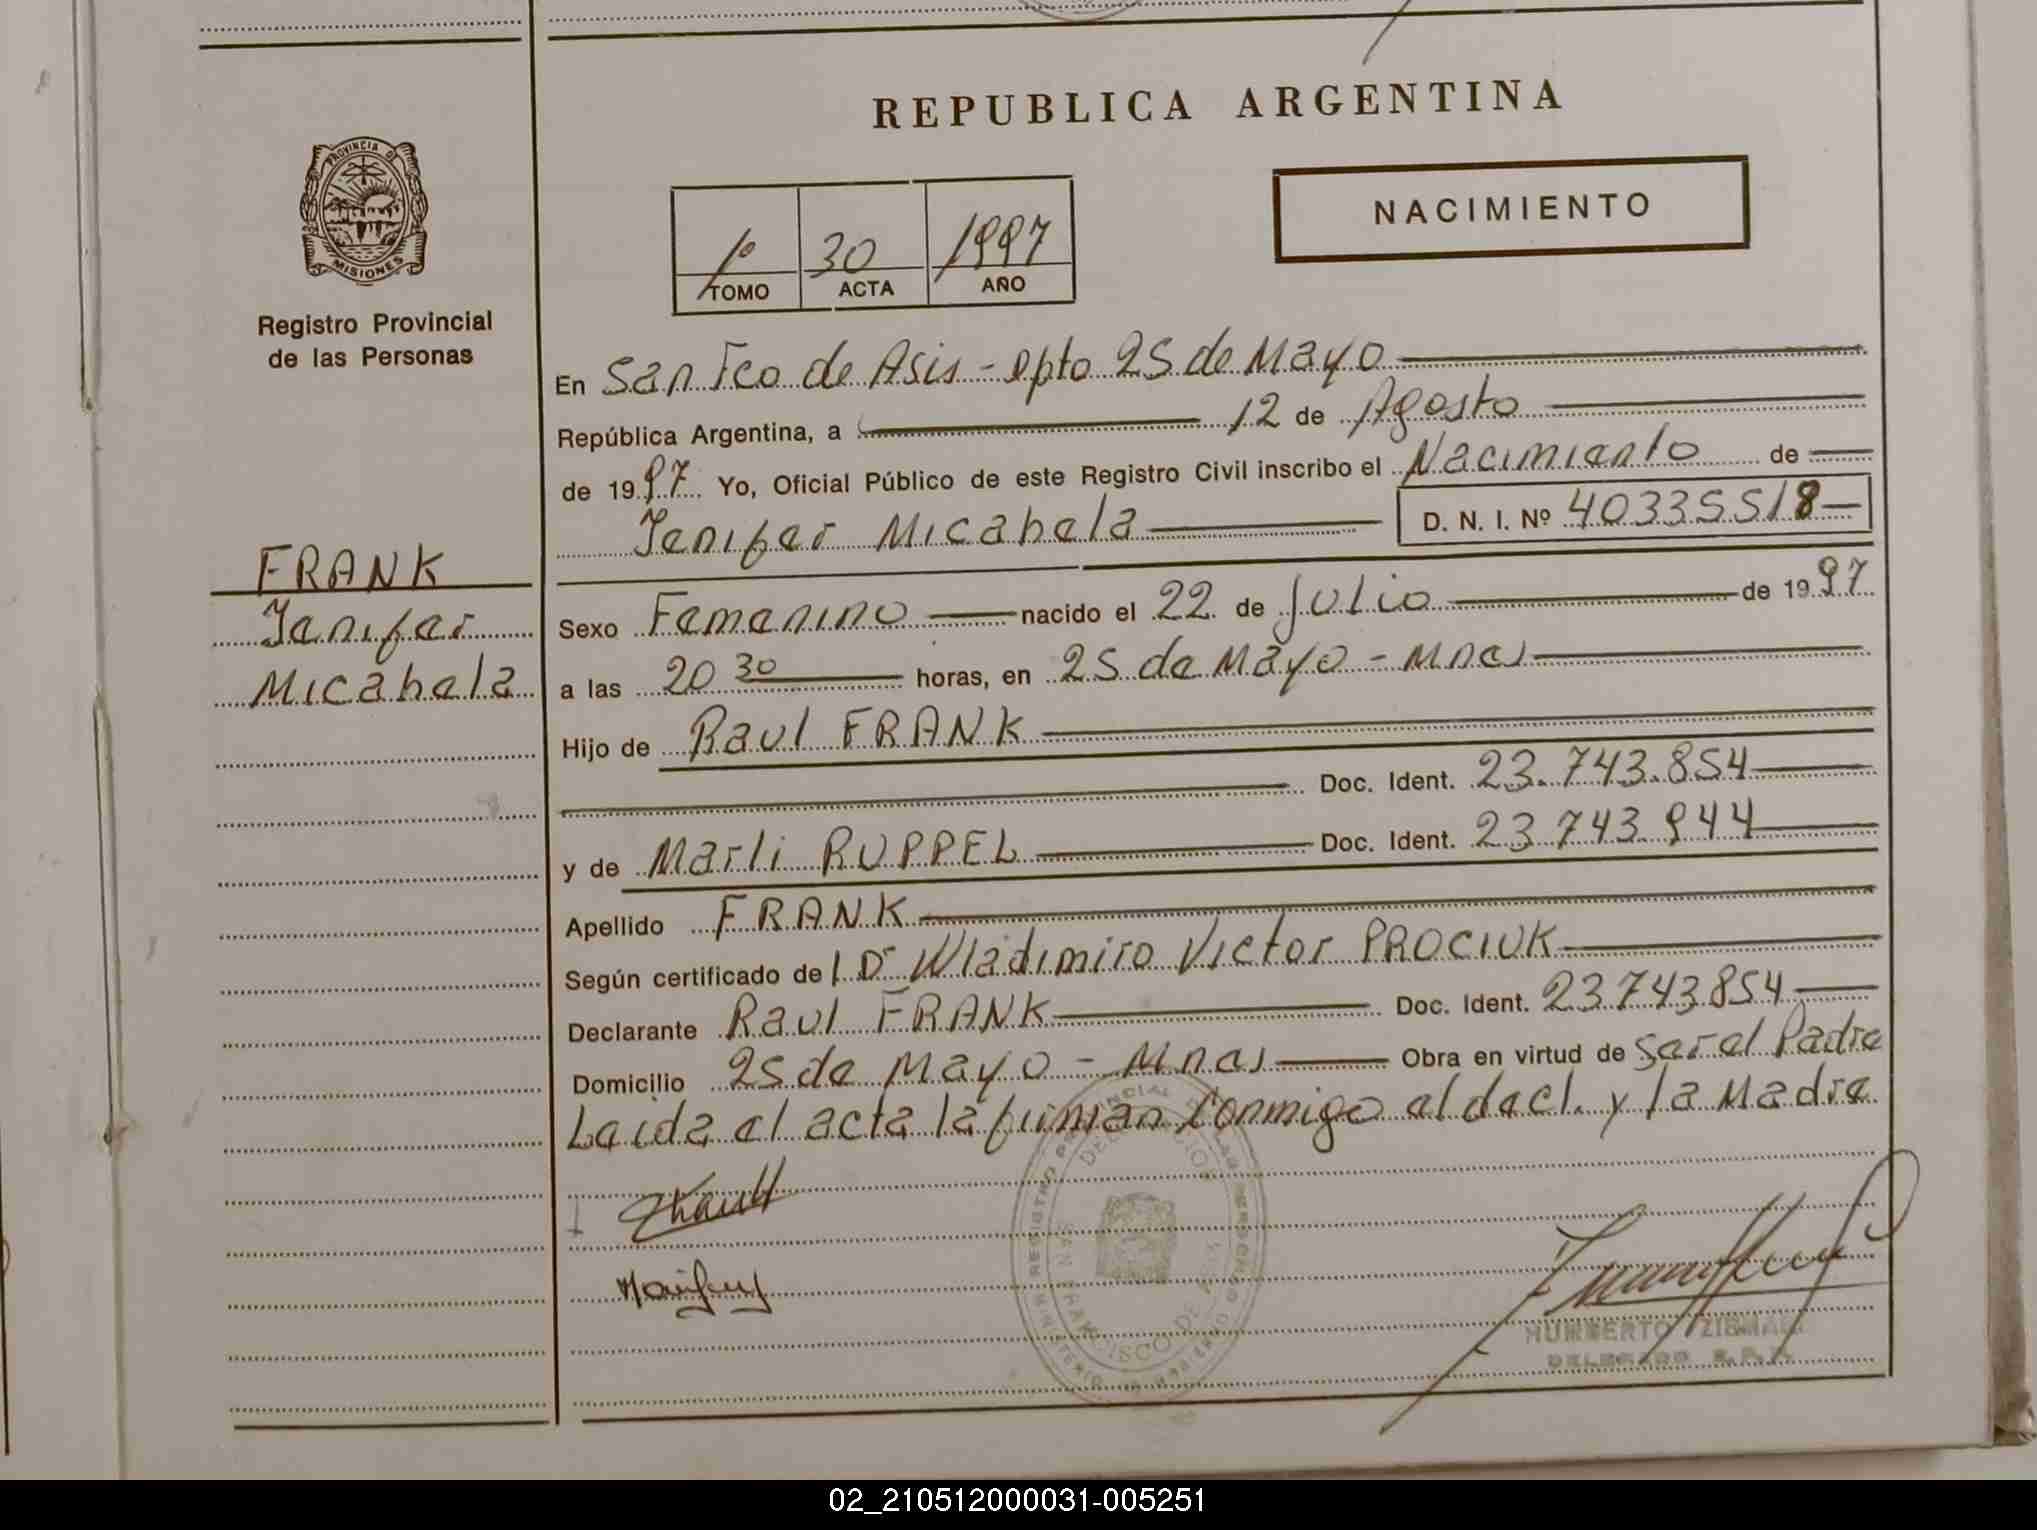 REPUBLICA ARGENTINA
PROVINCIA DE
MISIONES
Registro Provincial
de las Personas
NACIMIENTO
1º 30 1997
TOMO ACTA AÑO
En San Fco de Asis - Dpto 25 de Mayo
República Argentina, a 12 de Agosto
de 1997 Yo, Oficial Público de este Registro Civil inscribo el Nacimiento de
Jenifer Micahela D. N. I. Nº 40335518
FRANK
Jenifer
Micahela
Sexo Femenino nacido el 22 de Julio de 1997
a las 20 30 horas, en 25 de Mayo - Mnes
Hijo de Raul FRANK
Doc. Ident. 23.743.854
y de Marli RUPPEL Doc. Ident. 23743944
Apellido FRANK
Según certificado del Dr Wladimiro Victor PROCIUK
Declarante Raul FRANK Doc. Ident. 23743854
Domicilio 25 de Mayo - Mnes Obra en virtud de ser el Padre
Leida el acta la firman conmigo el decl. y la Madre
HUMBERTO
DELEGADO R.P.P.
02_210512000031-005251